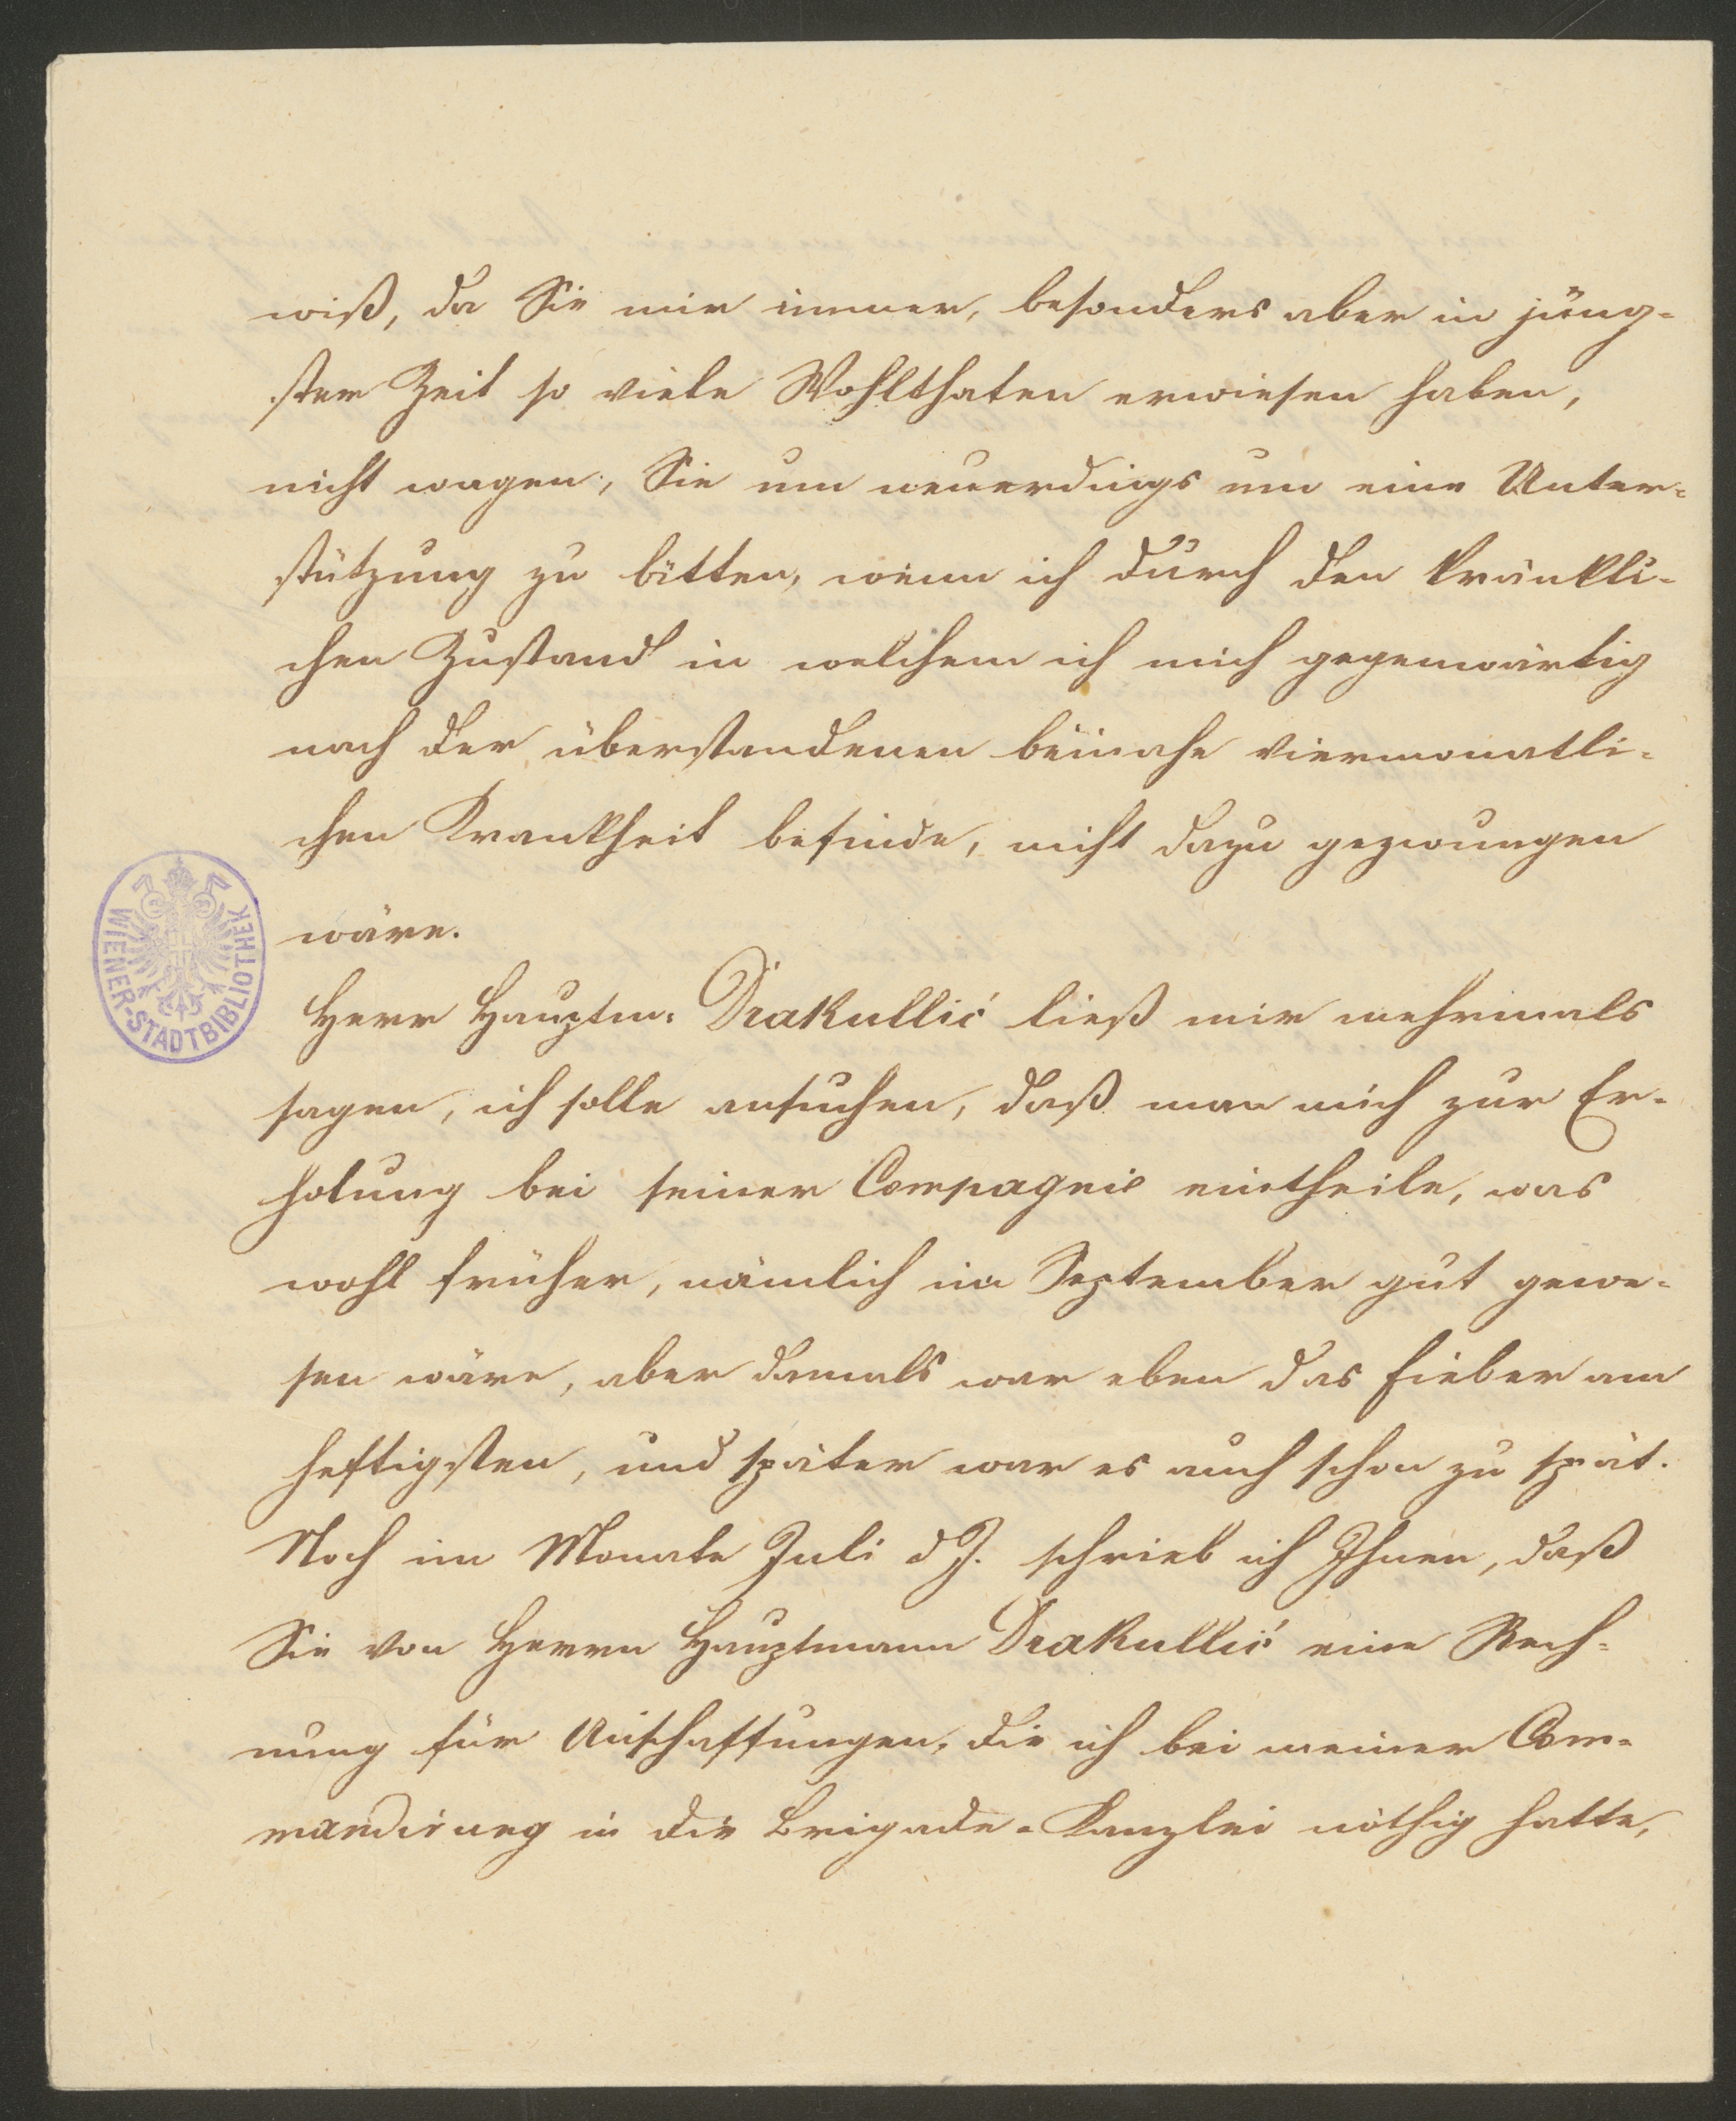 wiß, da Sie mir immer, besonders aber in jüng-
ster Zeit so viele Wohlthaten erwiesen haben,
nicht wagen, Sie um neuerdings um eine Unter-
stützung zu bitten, wenn ich durch den kränkli-
chen Zustand in welchem ich mich gegenwärtig
nach der überstandenen beinahe viermonatli-
chen Krankheit befinde, nicht dazu gezwungen
wäre.
Herr Hauptm. Drakullić ließ mir mehrmals
sagen, ich solle ansuchen, daß man mich zur Er-
holung bei seiner Compagnie eintheile, was
wohl früher, nämlich im September gut gewe-
sen wäre, aber damals war eben das Fieber am
heftigsten, und später war es auch schon zu spät.
Noch im Monate Juli d J. schrieb ich Ihnen, daß
Sie von Herrn Hauptmann Drakullić eine Rech-
nung für Anschaffungen, die ich bei meiner Com-
mandirung in die Brigade-Kanzlei nöthig hatte,
WIENER-STADTBIBLIOTHEK